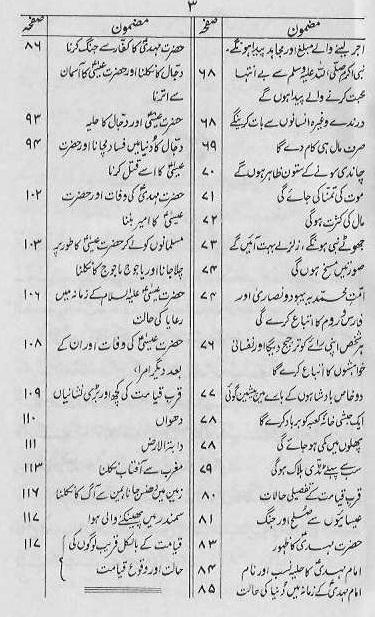 ۳
مضمون صفحہ
اجر لینے والے مبلغ اور مجاہد پیدا ہونگے۔
نبی اکرم صلی اللہ علیہ وسلم سے بے انتہا ۶۸
محبت کرنے والے پیدا ہوں گے
درندے وغیرہ انسانوں سے بات کرینگے ۶۸
صرف مال ہی کام دے گا ۶۹
چاندی سونے کے ستون ظاہر ہوں گے ۷۰
موت کی تمنا کی جائے گی ۷۱
مال کی کثرت ہوگی ۷۲
جھوٹے نبی ہونگے، زلزلے بہت آئیں گے ۷۳
صورتیں مسخ ہوں گی ۷۴
امت محمدیہ یہود و نصاریٰ اور ۷۴
فارس و روم کا اتباع کرے گی
ہر شخص اپنی رائے کو ترجیح دیگا اور نفسانی ۷۶
خواہشوں کا اتباع کرے گا
دو خاص بادشاہوں کے بارے میں پیشین گوئی ۷۷
ایک حبشی خانہ کعبہ کو برباد کرے گا ۷۸
پھلوں میں کمی ہو جائے گی ۷۸
سب سے پہلے ٹڈی ہلاک ہوگی ۷۹
قرب قیامت کے تفصیلی حالات ۸۰
عیسائیوں سے صلح اور جنگ ۸۱
حضرت مہدیؑ کا ظہور ۸۳
امام مہدیؑ کا حلیہ نسب اور نام ۸۴
امام مہدیؑ کے زمانہ میں دنیا کی حالت ۸۵
مضمون صفحہ
حضرت مہدیؑ کا کفار سے جنگ کرنا ۸۶
دجال کا نکلنا اور حضرت عیسیٰؑ کا آسمان
سے اترنا
حضرت عیسیٰؑ اور دجال کا حلیہ ۹۳
دجال کا دنیا میں فساد مچانا اور حضرت ۹۴
عیسیٰؑ کا اسے قتل کرنا
حضرت مہدیؑ کی وفات اور حضرت ۱۰۲
عیسیٰؑ کا امیر بننا
مسلمانوں کو لے کر حضرت عیسیٰؑ کا طور پر ۱۰۳
چلا جانا اور یاجوج ماجوج کا نکلنا
حضرت عیسیٰ علیہ السلام کے زمانہ میں ۱۰۶
رعایا کی حالت
حضرت عیسیٰؑ کی وفات اور ان کے ۱۰۸
بعد دیگر امراء
قرب قیامت کی کچھ اور بڑی نشانیاں ۱۰۹
دھواں ۱۱۰
دابۃ الارض ۱۱۱
مغرب سے آفتاب نکلنا ۱۱۳
زمین میں دھنس جانا یمن سے آگ کا نکلنا ۱۱۶
سمندر میں پھینکنے والی ہوا ۱۱۷
قیامت کے بالکل قریب لوگوں کی ۱۱۷
حالت اور وقوع قیامت